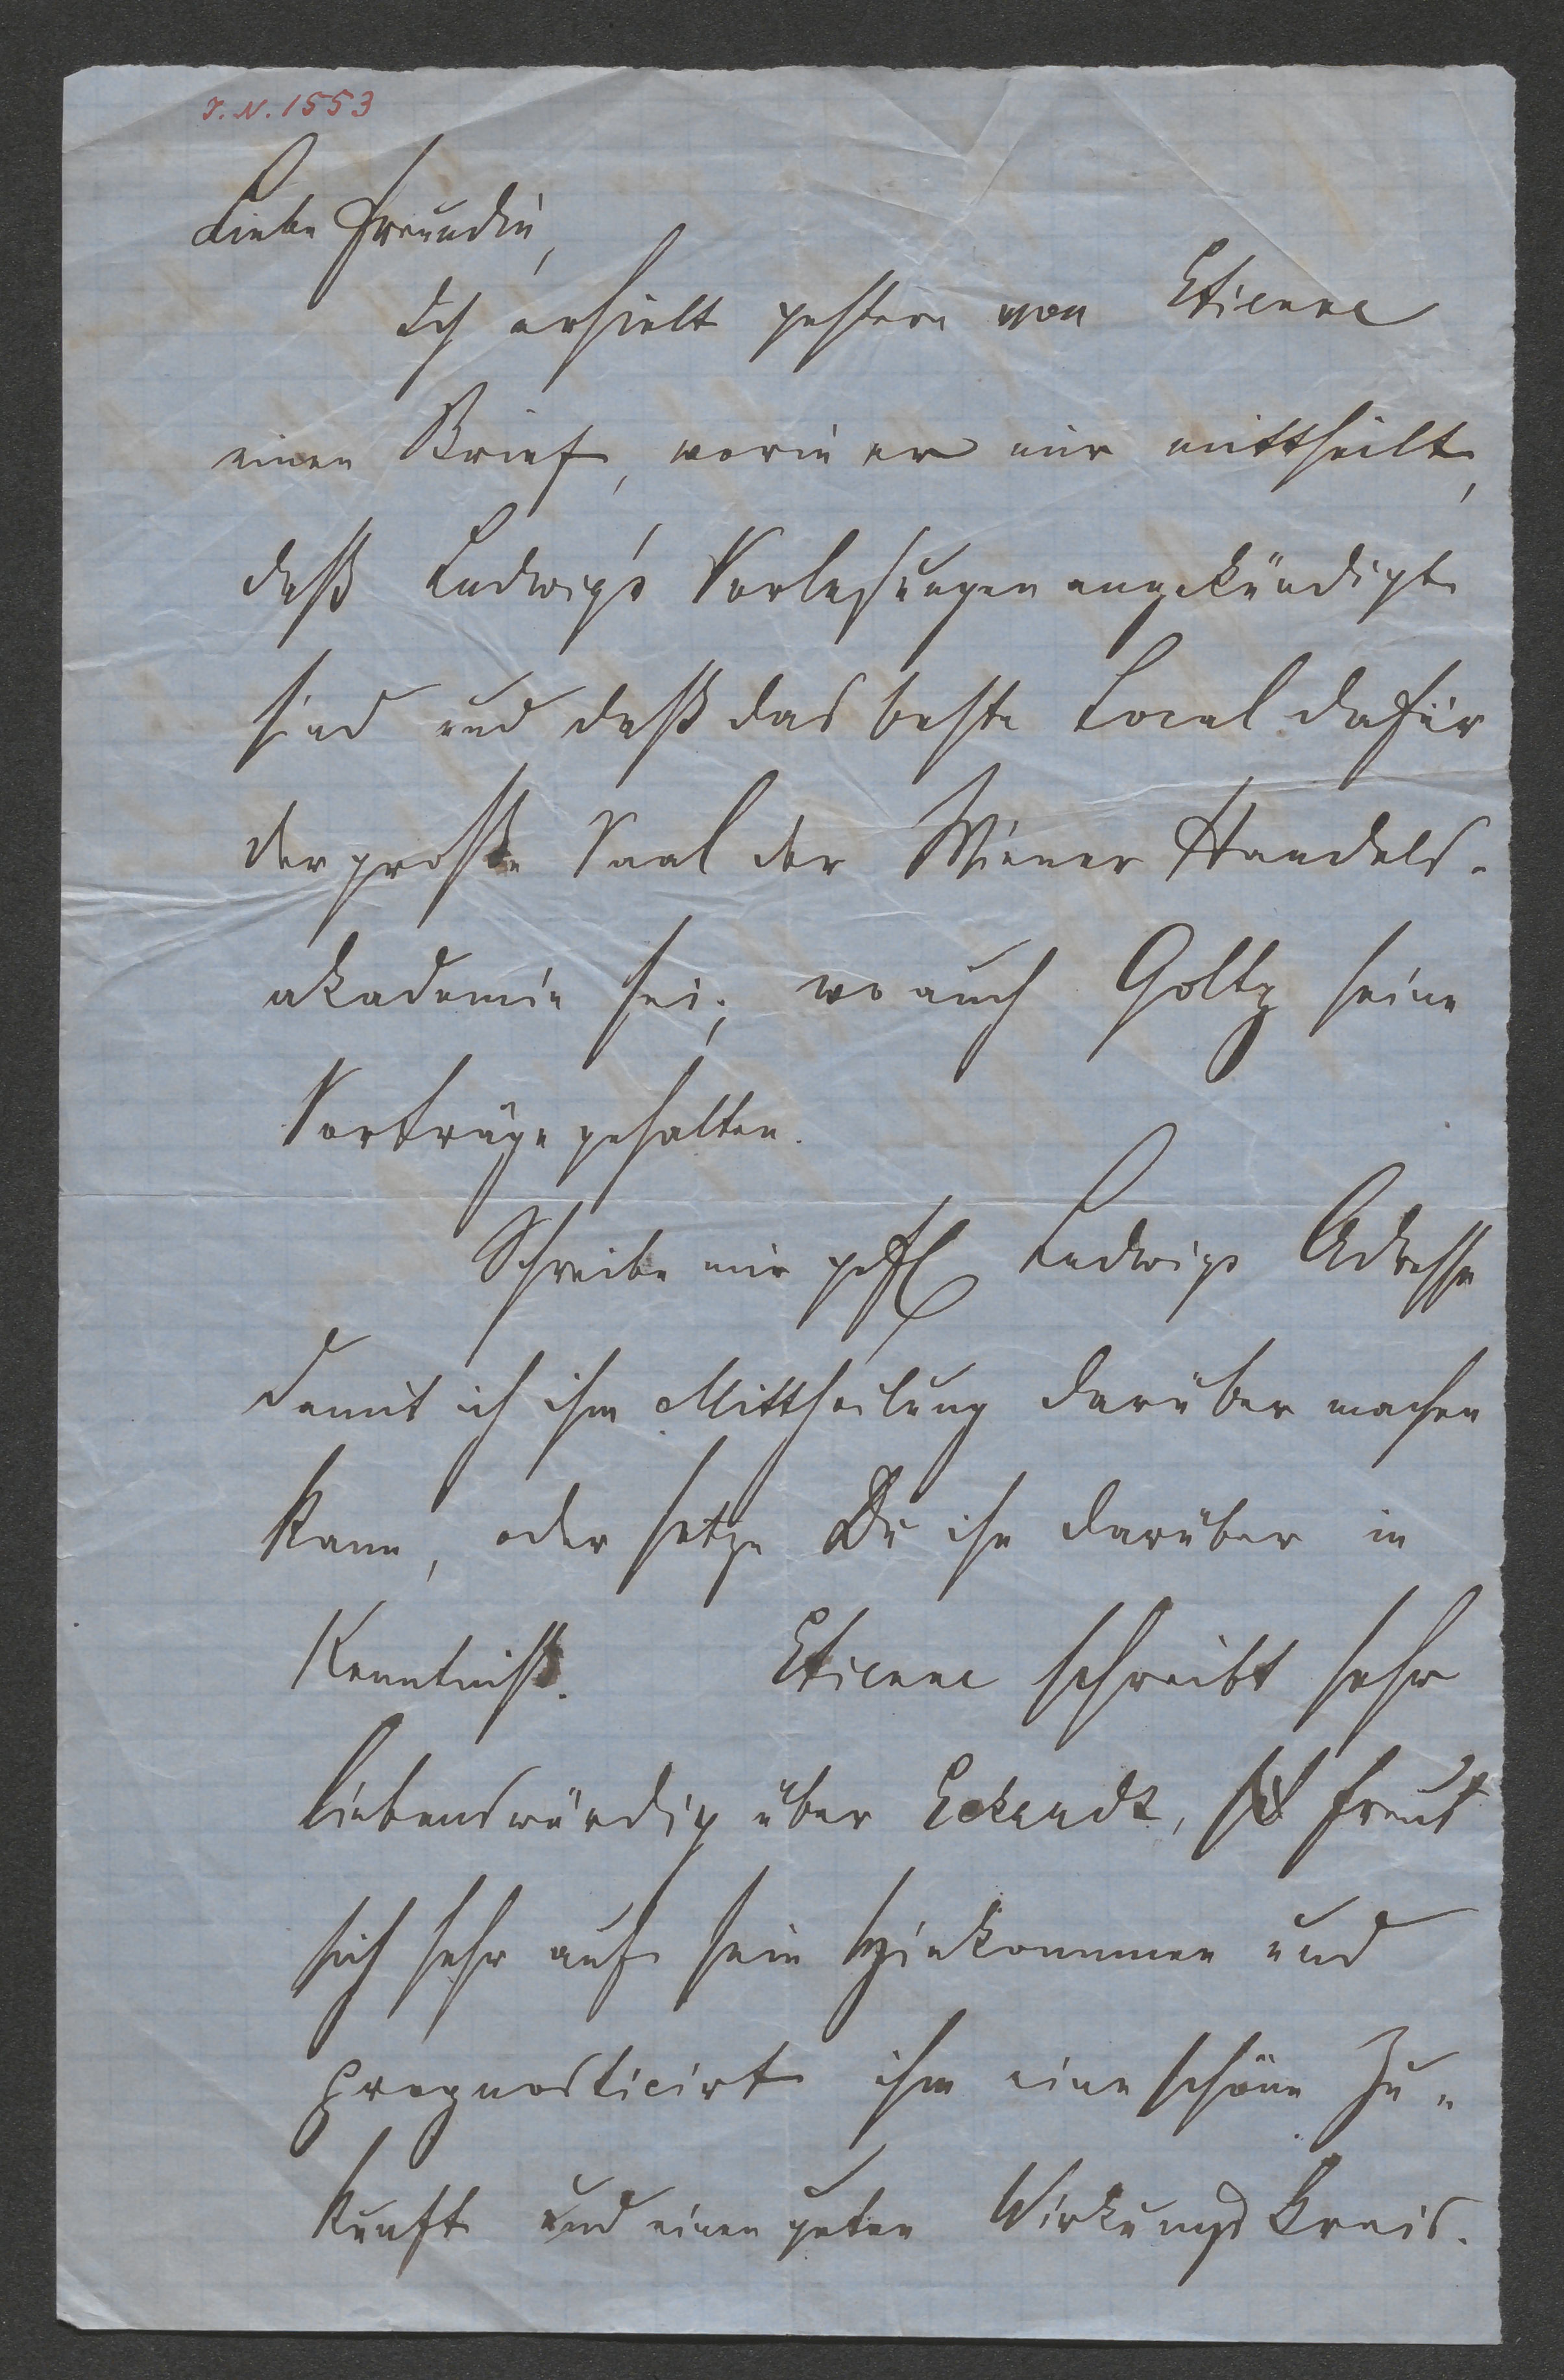 J. N. 1553
Liebe Freundin,
Ich erhielt gestern von Etienne
einen Brief, worin er mir mittheilt,
daß Ludwig's Vorlesungen angekündigt
sind und daß das beste Local dafür
der große Saal der Wiener Handels-
akademie sei; wo auch Goltz seine
Vorträge gehalten.
Schreibe mir gefl Ludwigs Adresse
damit ich ihm Mittheilung darüber machen
kann, oder setze Du ihn darüber in
Kenntniß. Etienne schreibt sehr
liebenswürdig über Eckardt, freut
sich sehr auf sein Hinkommen und
prognosticirt ihm eine schöne Zu-
kunft und einen guten Wirkungskreis.